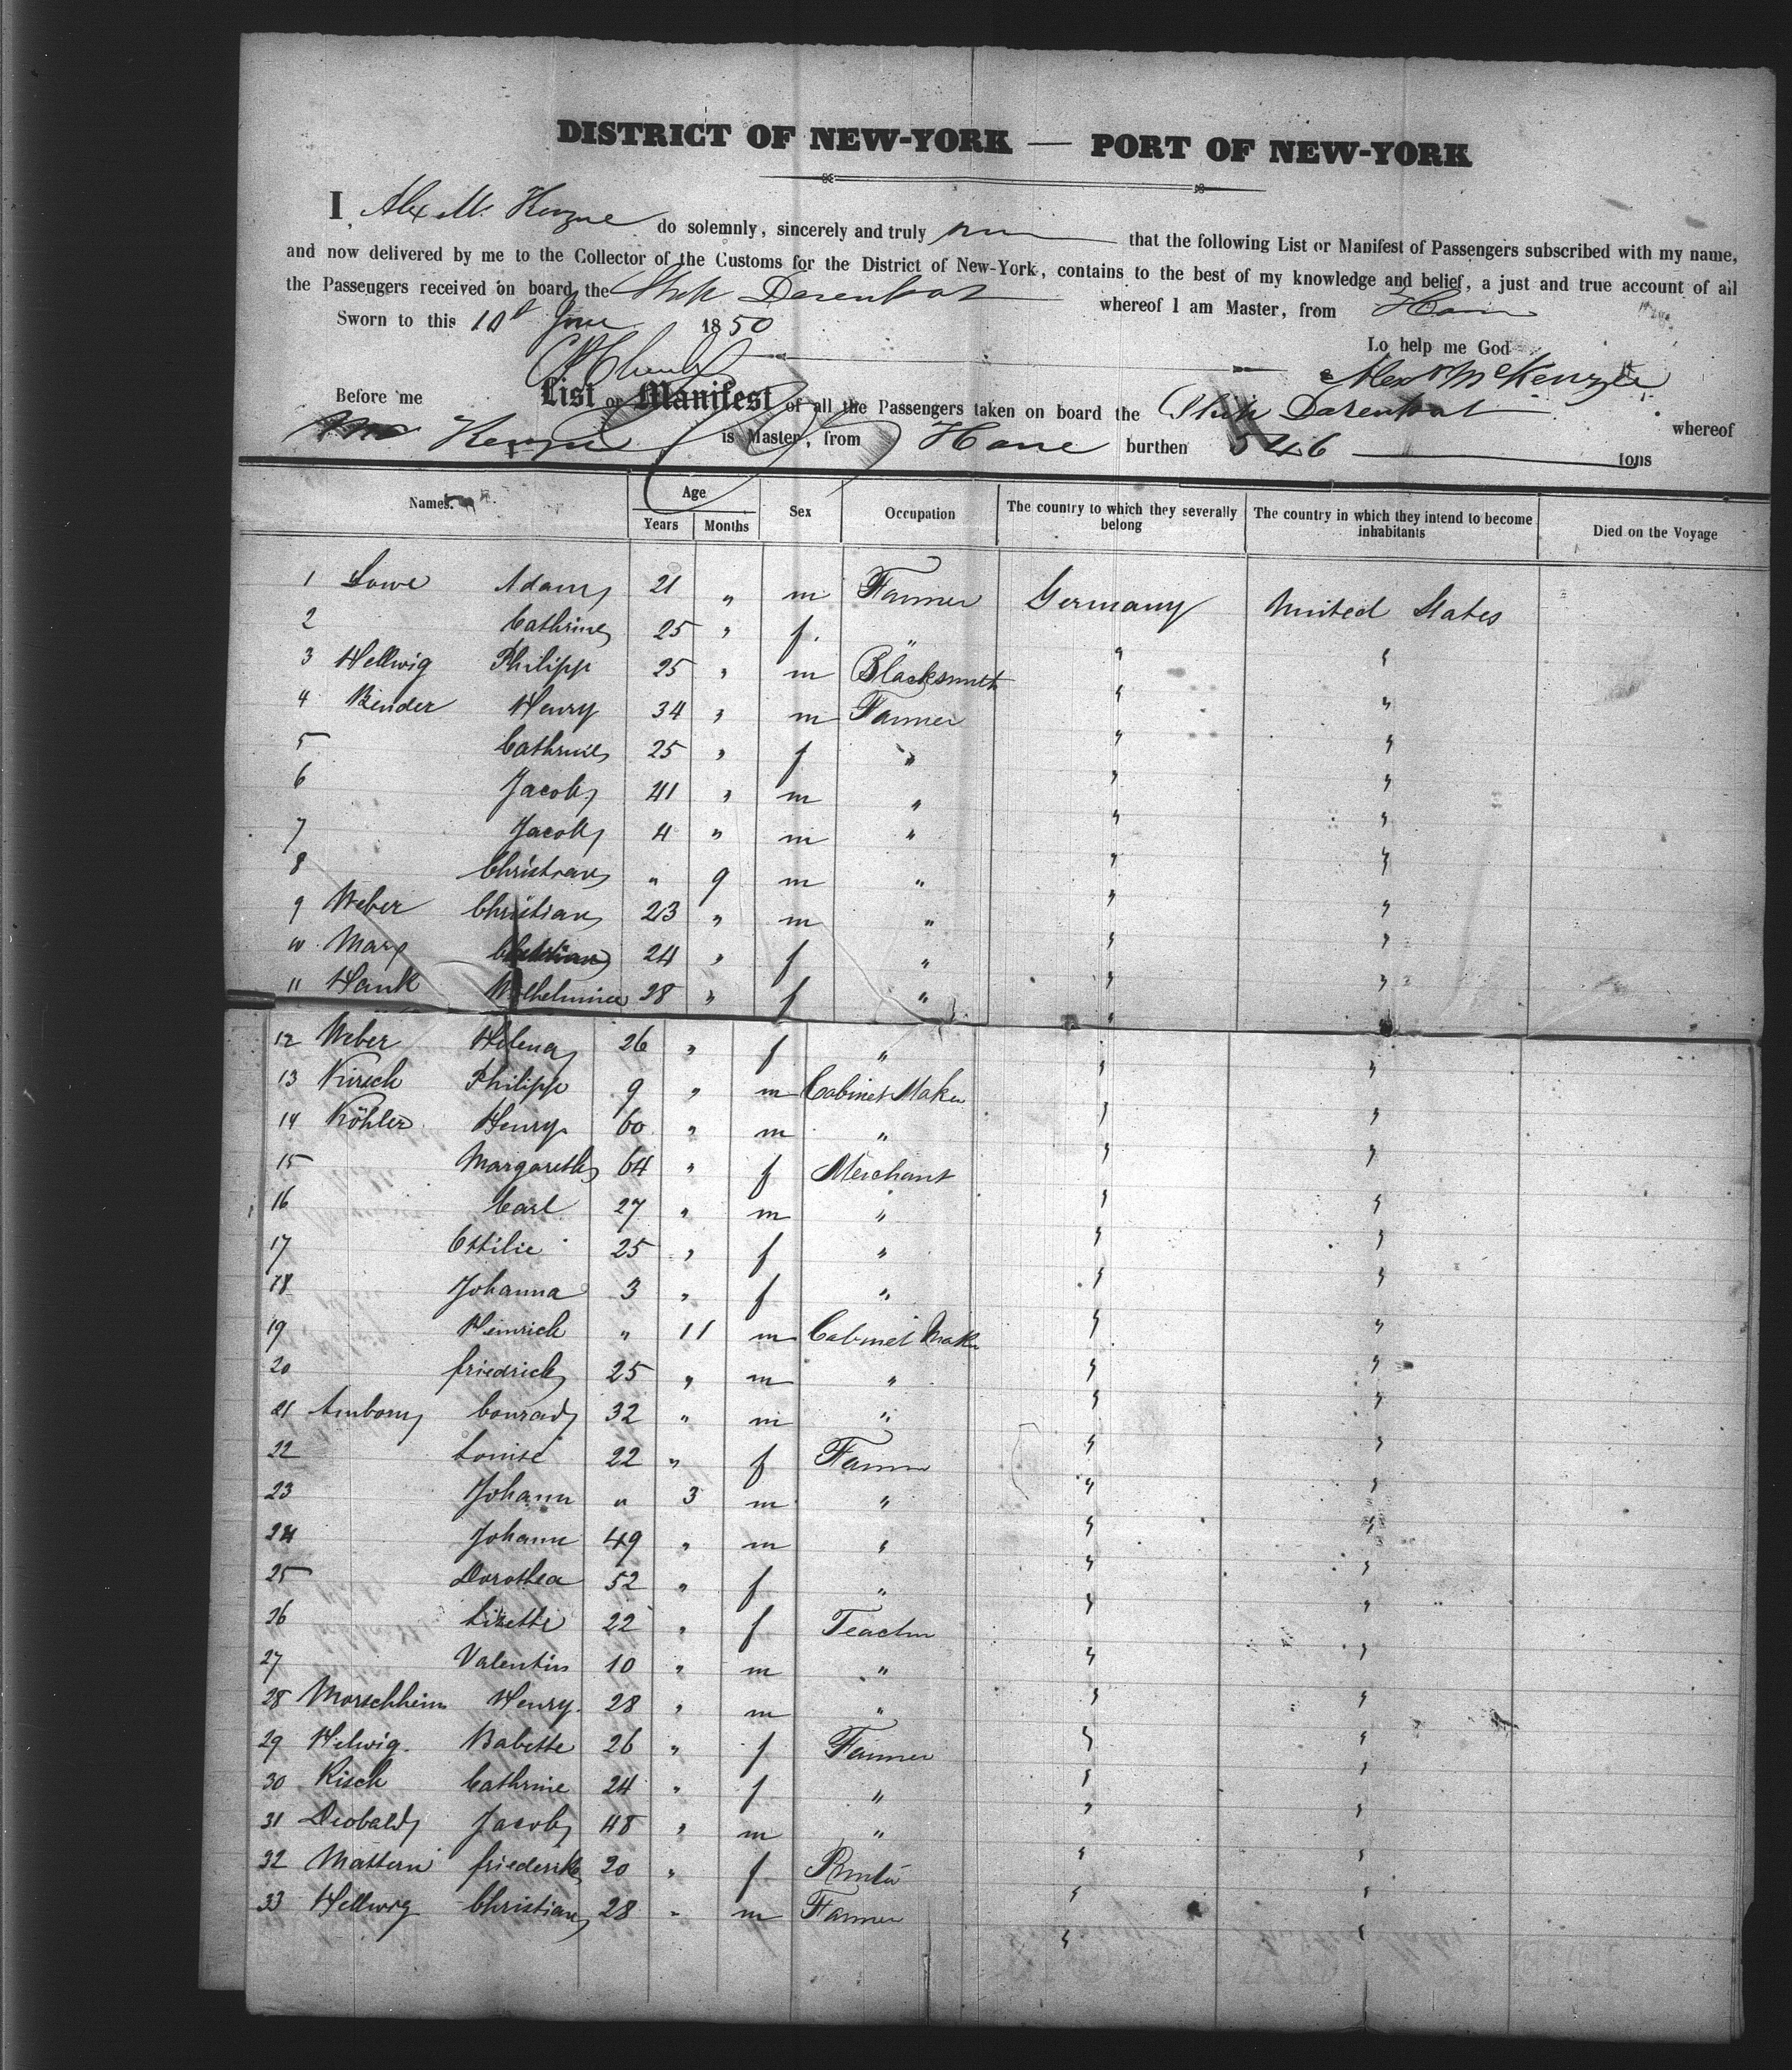 DISTRICT OF NEW-YORK — PORT OF NEW-YORK
I, Alex Mc Kenzie do solemnly, sincerely and truly that the following List or Manifest of Passengers subscribed with my name,
and now delivered by me to the Collector of the Customs for the District of New-York, contains to the best of my knowledge and belief, a just and true account of all
the Passengers received on board the Ship whereof I am Master, from Havre
Sworn to this 10th June 1850
Lo help me God
Alex McKenzie
Before me List or Manifest of all the Passengers taken on board the Ship whereof
Mc Kenzie is Master, from Havre burthen 546 tons
Names. Age Sex Occupation The country to which they severally belong The country in which they intend to become inhabitants Died on the Voyage
Years Months
1 Lowe Adam 21 " m Farmer Germany United States
2 Cathrine 25 " f. " " "
3 Hellwig Philipp 25 " m Blacksmith " "
4 Binder Henry 34 " m Farmer " "
5 Cathrine 25 " f " " "
6 Jacob 41 " m " " "
7 Jacob 4 " m " " "
8 Christian " 9 m " " "
9 Weber Christian 23 " m " " "
10 Marx 24 " f " " "
11 Hank Wilhelmina 28 " f " " "
12 Weber Helena 26 " f " " "
13 Kirsch Philipp 9 " m Cabinet Maker " "
14 Köhler Henry 60 " m " " "
15 Margareth 64 " f Merchant " "
16 Carl 27 " m " " "
17 Ottilie 25 " f " " "
18 Johanna 3 " f " " "
19 Heinrich " 11 m Cabinet Maker " "
20 friedrich 25 " m " " "
21 Conrad 32 " m " " "
22 Louise 22 " f Farmer " "
23 Johann " 3 m " " "
24 Johann 49 " m " " "
25 Dorothea 52 " f " " "
26 Lizette 22 " f Teacher " "
27 Valentin 10 " m " " "
28 Morschheim Henry 28 " m " " "
29 Helwig Babette 26 " f Farmer " "
30 Kisch Cathrine 24 " f " " "
31 Deobald Jacob 48 " m " " "
32 Mattern friederike 20 " f " "
33 Hellwig Christian 28 " m Farmer " "